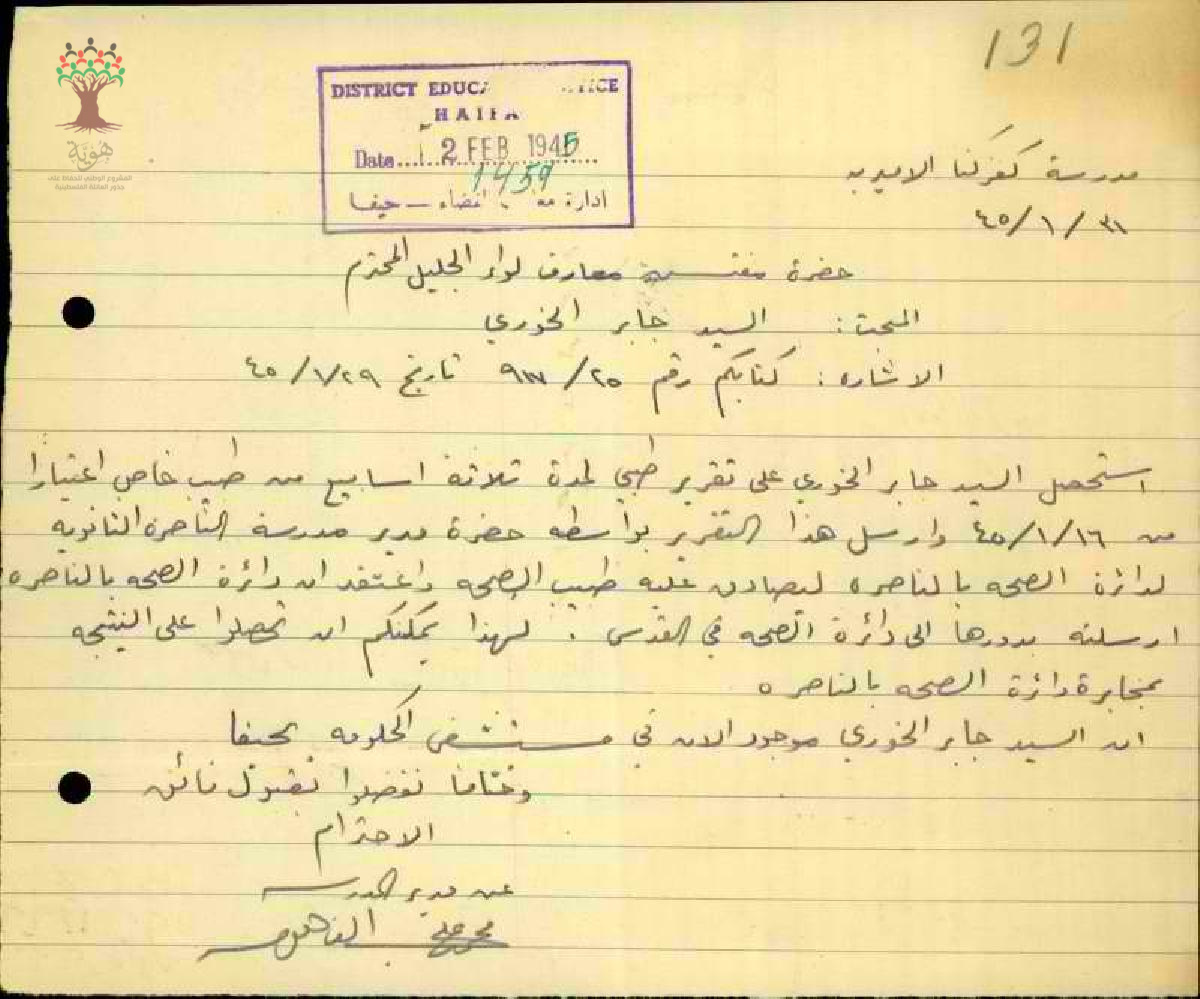 131
هوية
المشروع الوطني للحفاظ على
جذور العائلة الفلسطينية
DISTRICT EDUCA ICE
HAIFA
Date 2 FEB 1945
1459
ادارة قضاء – حيفا
مدرسة كفركنا الاميريه
٤٥/١/٣١
حضرة مفتش معارف لواء الجليل المحترم
المبحث : السيد جابر الخوري
الاشاره : كتابكم رقم ٢٥/ تاريخ ٤٥/١/٢٩
استحصل السيد جابر الخوري على تقرير طبي لمدة ثلاثة اسابيع من طبيب خاص اعتبارا
من ٤٥/١/١٦ وارسل هذا التقرير بواسطه حضرة مدير مدرسة الناصره الثانويه
لدائرة الصحه بالناصره ليصادق عليه طبيب الصحه واعتقد ان دائرة الصحه بالناصره
ارسلته بدورها الى دائرة الصحه في القدس . لهذا يمكنكم ان تحصلوا على النتيجه
بمخابرة دائرة الصحه بالناصره
ان السيد جابر الخوري موجود الان في مستشفى الحكومه بحيفا
وختاما تفضلوا بقبول فائق
الاحترام
عن مدير المدرسه